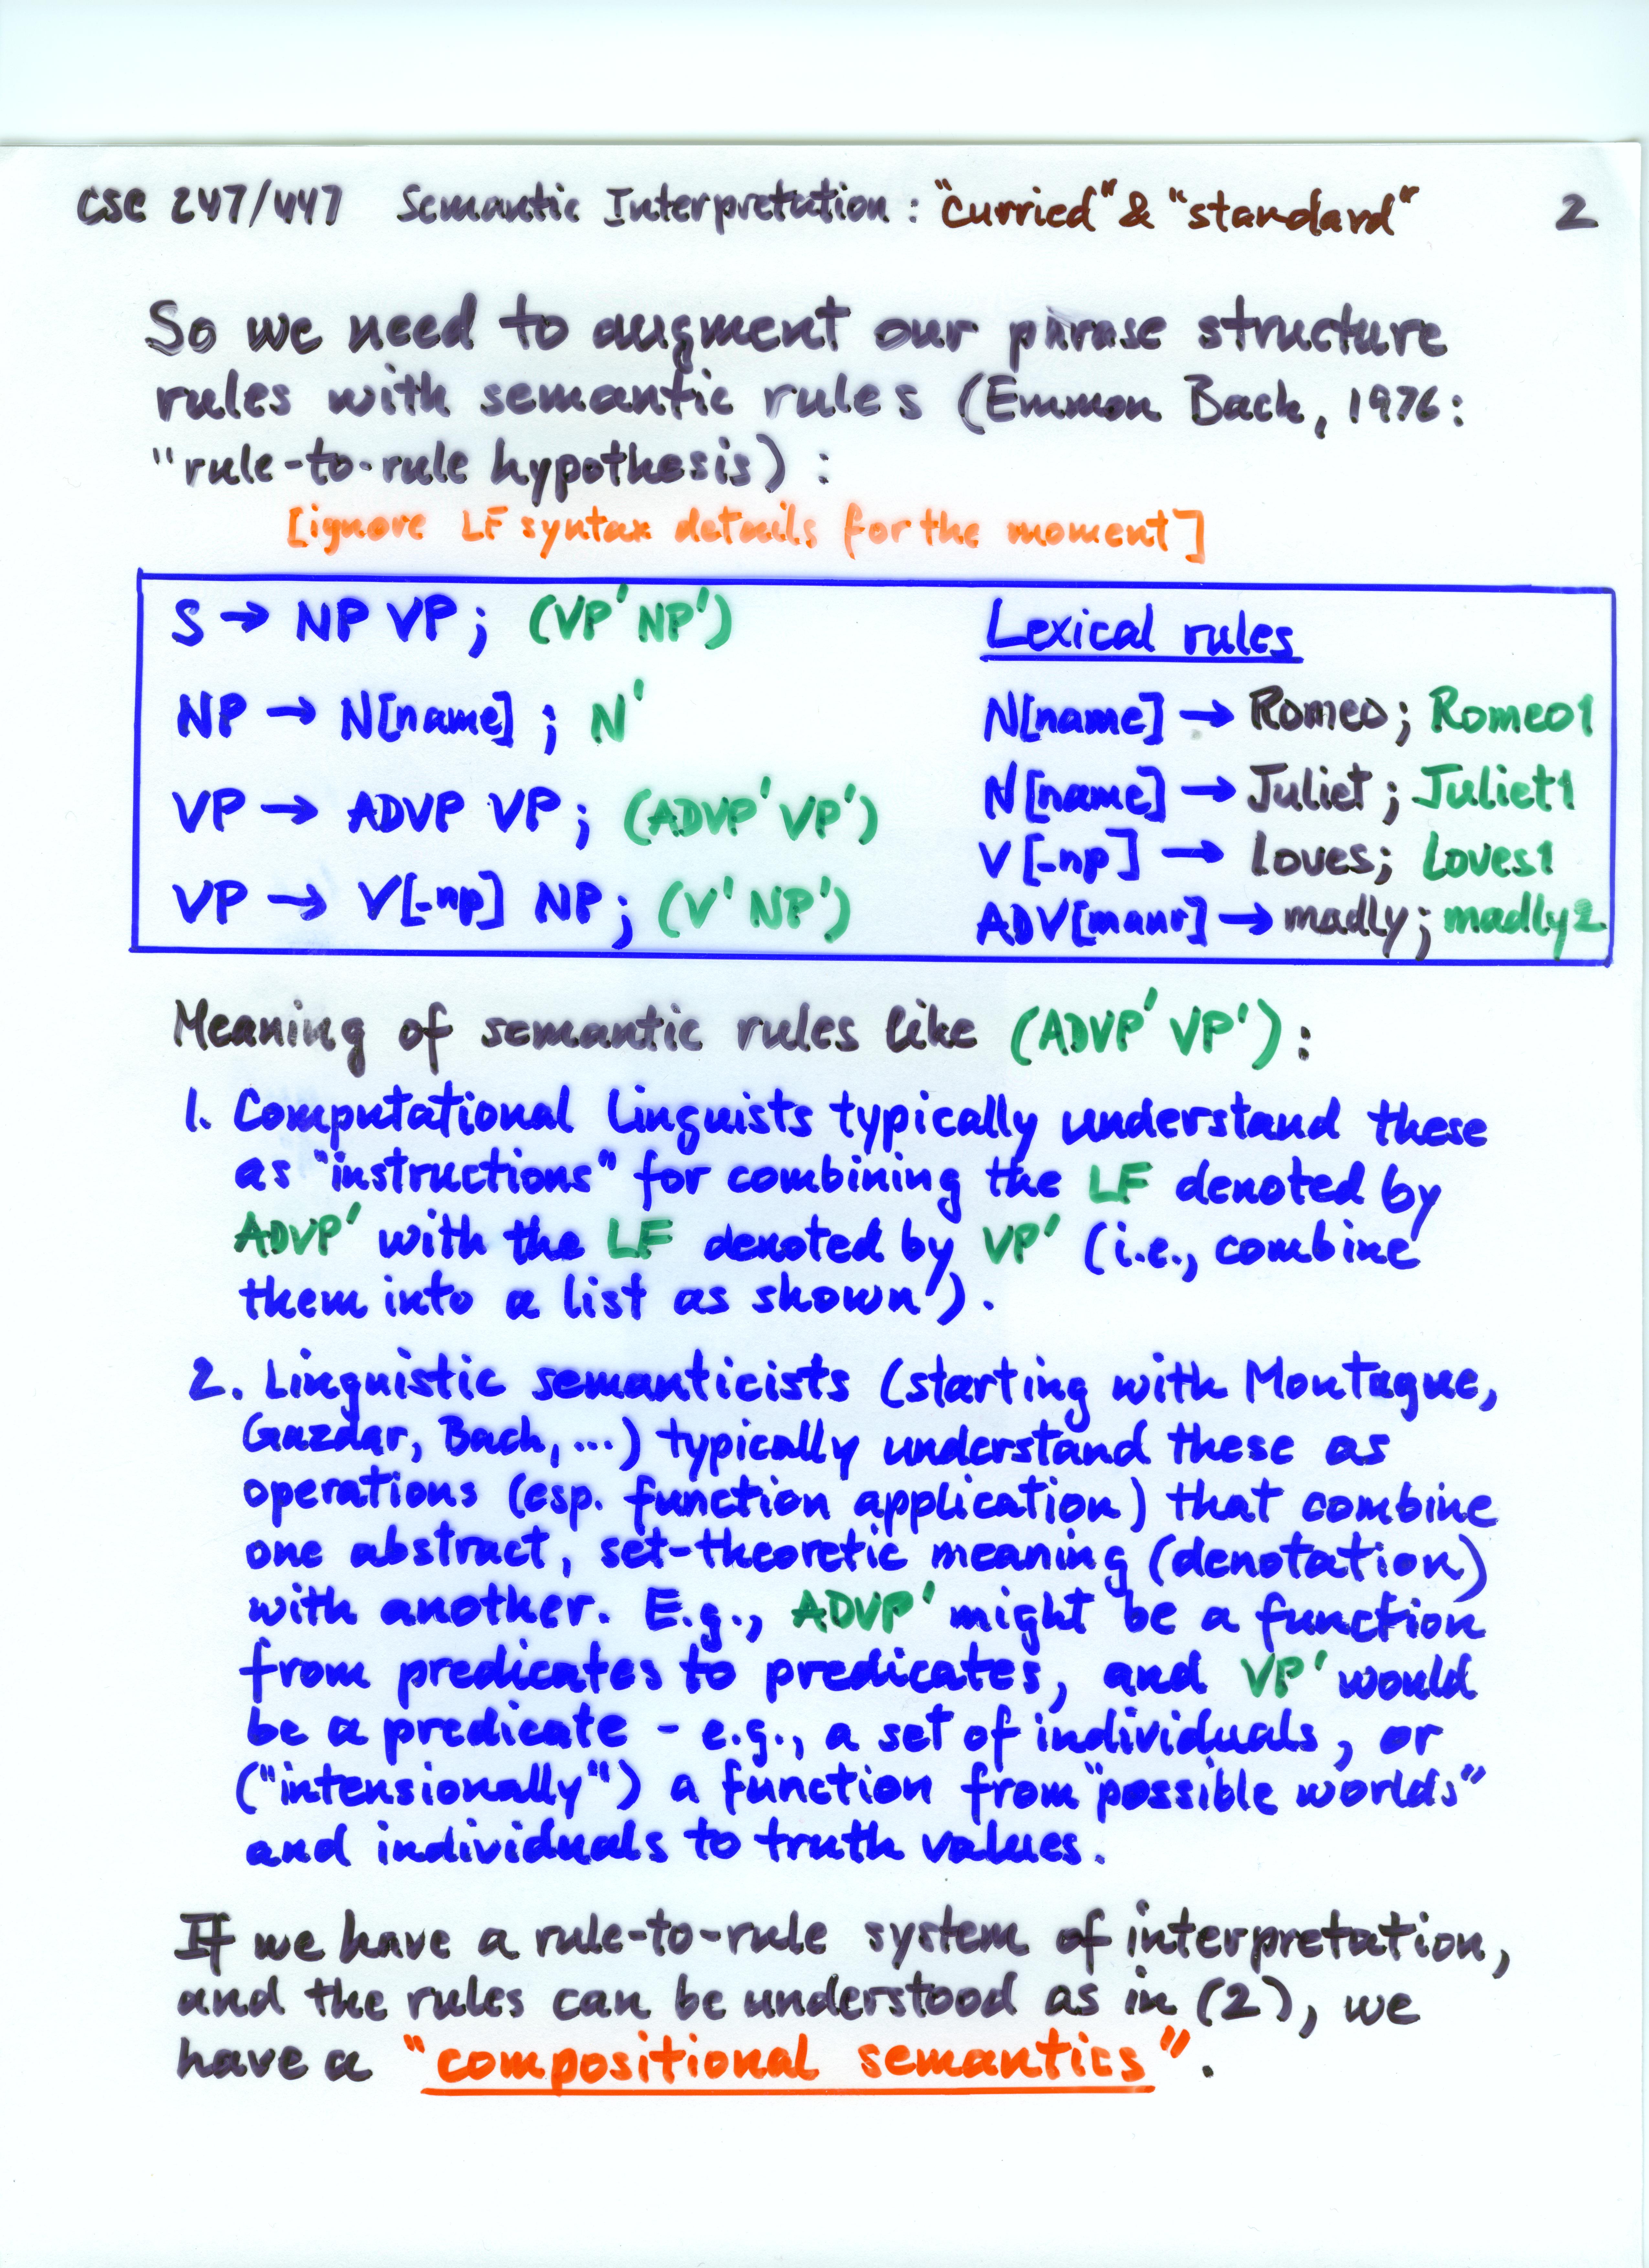 CSC 247/447 Semantic Interpretation: "curried" & "standard" 2
So we need to augment our phrase structure
rules with semantic rules (Emmon Bach, 1976:
"rule-to-rule hypothesis):
[ignore LF syntax details for the moment]
S → NP VP; (VP' NP')
NP → N[name]; N'
VP → ADVP VP; (ADVP' VP')
VP → V[-np] NP; (V' NP')
Lexical rules
N[name] → Romeo; Romeo1
N[name] → Juliet; Juliet1
V[-np] → loves; loves1
ADV[manr] → madly; madly2
Meaning of semantic rules like (ADVP' VP'):
1. Computational linguists typically understand these
as "instructions" for combining the LF denoted by
ADVP' with the LF denoted by VP' (i.e., combine
them into a list as shown).
2. Linguistic semanticists (starting with Montague,
Gazdar, Bach, ...) typically understand these as
operations (esp. function application) that combine
one abstract, set-theoretic meaning (denotation)
with another. E.g., ADVP' might be a function
from predicates to predicates, and VP' would
be a predicate - e.g., a set of individuals, or
("intensionally") a function from "possible worlds"
and individuals to truth values.
If we have a rule-to-rule system of interpretation,
and the rules can be understood as in (2), we
have a "compositional semantics".